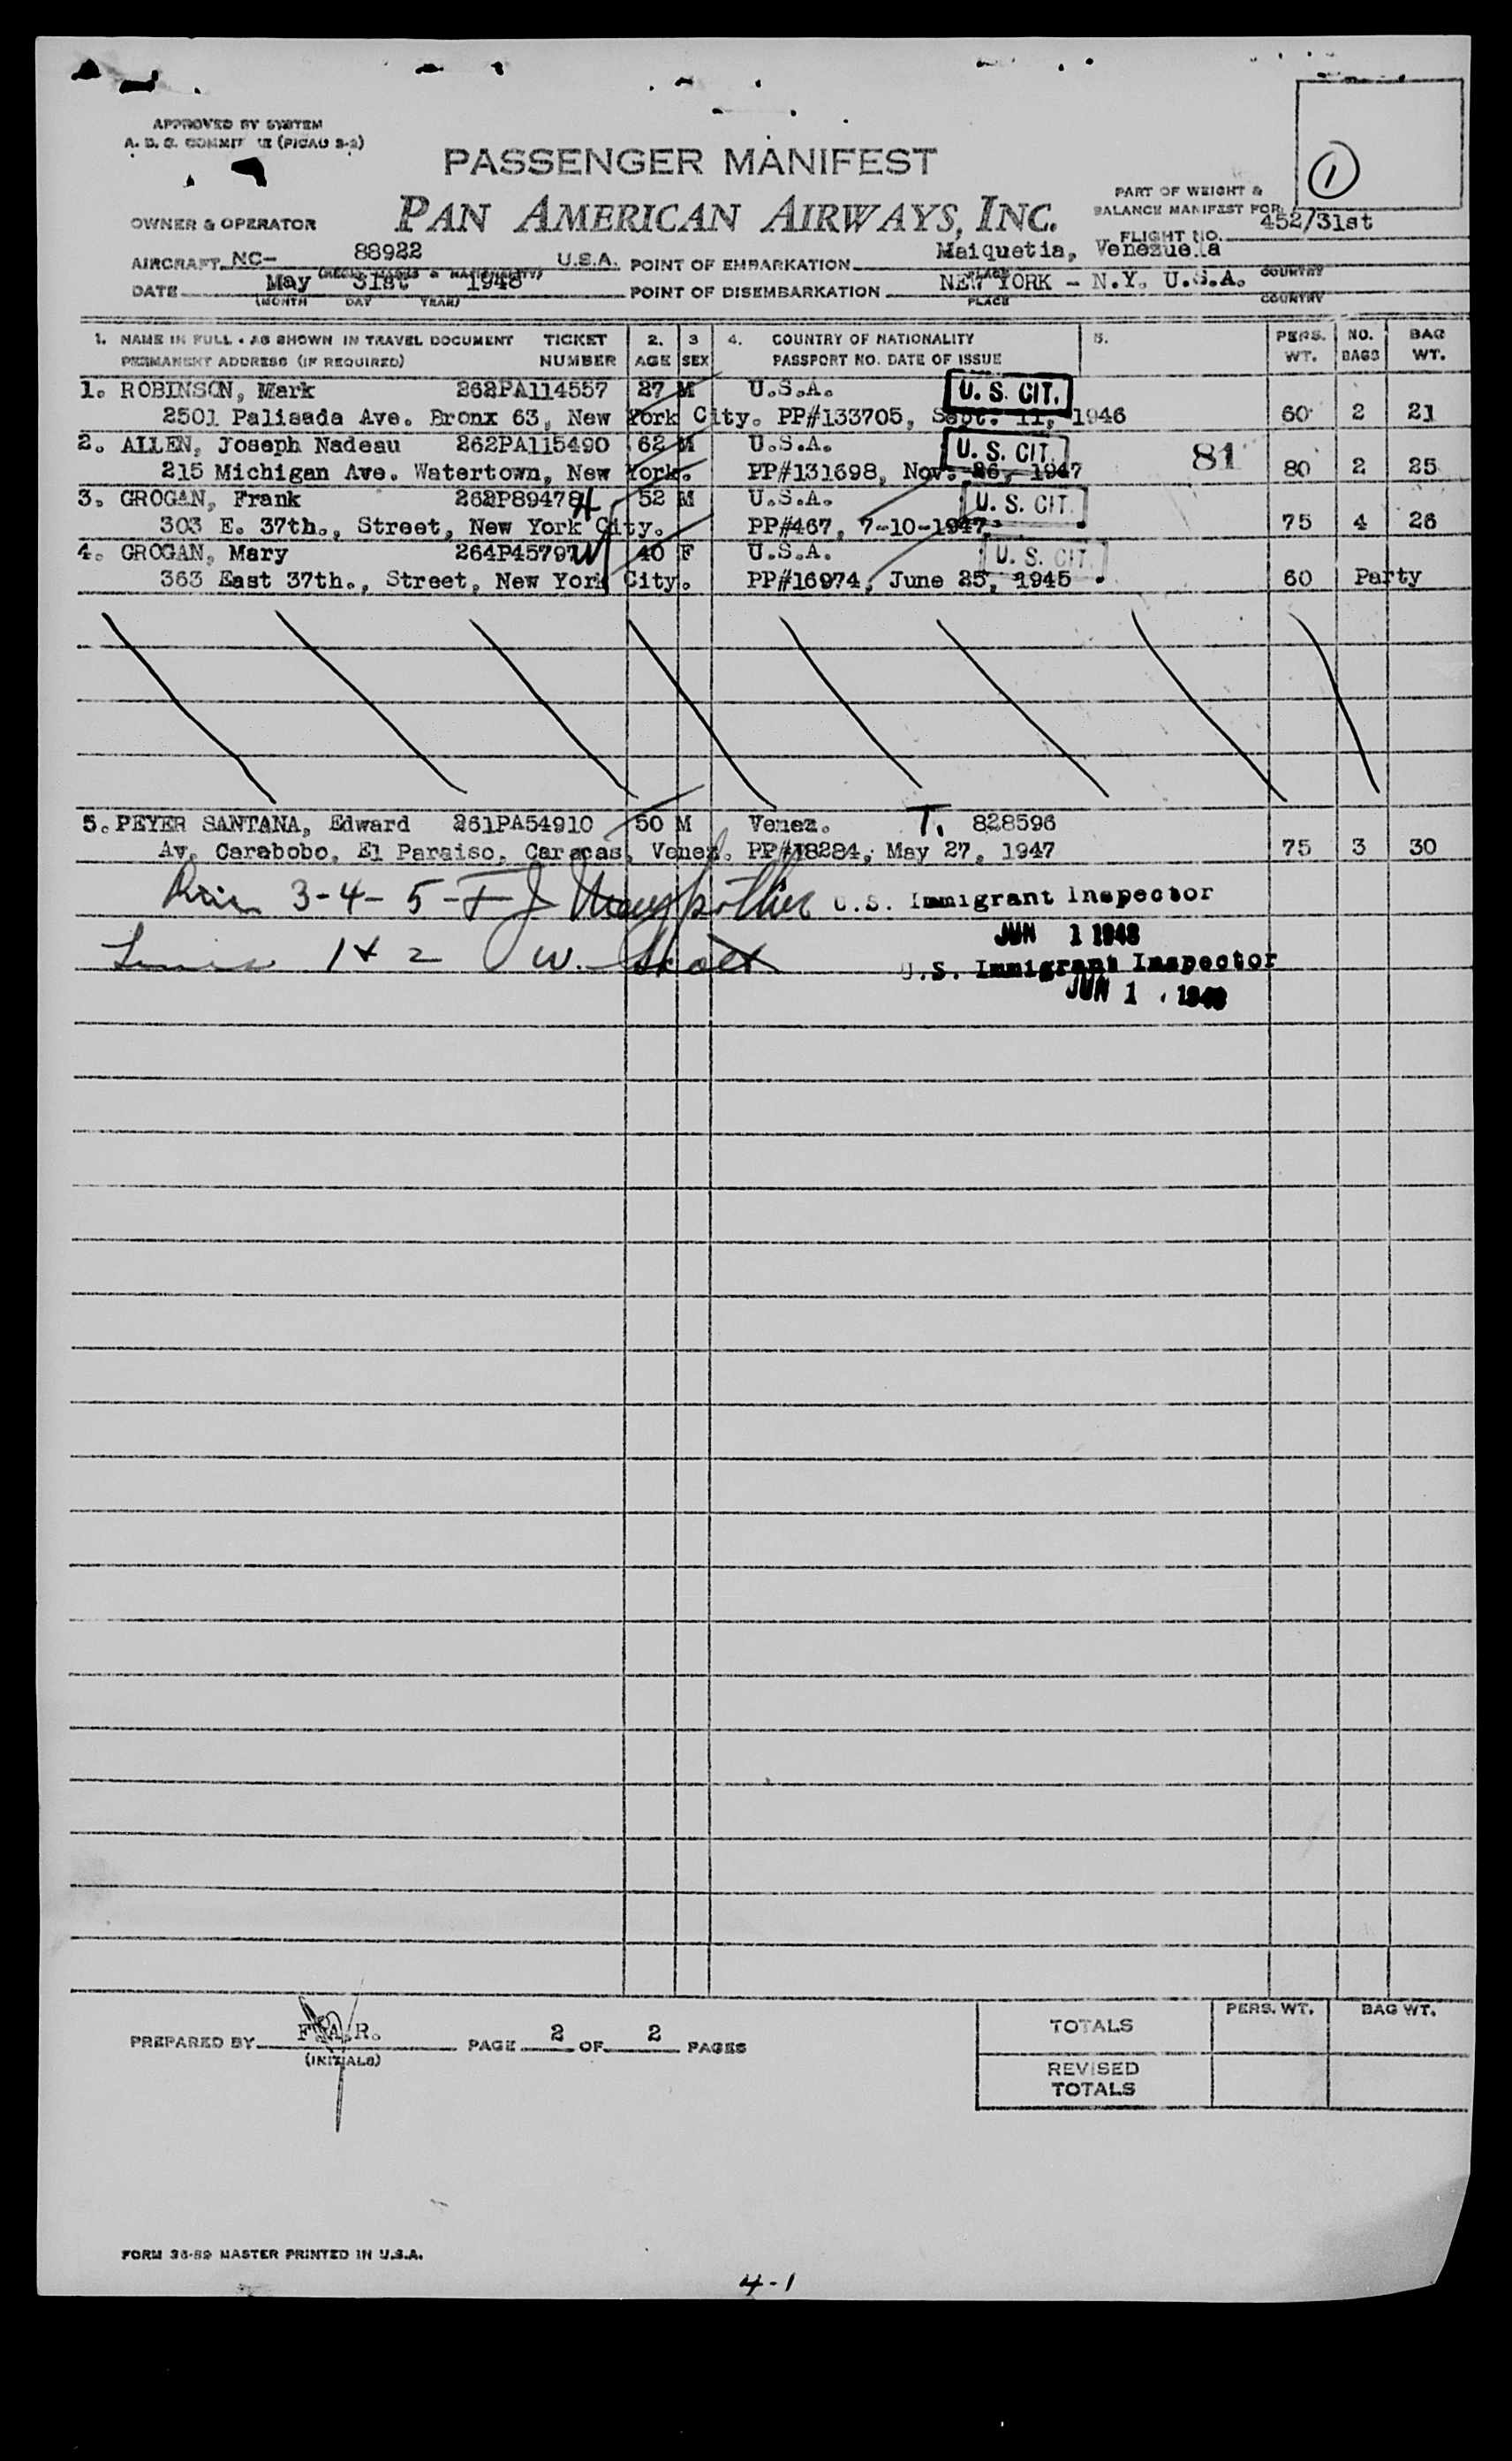 APPROVED BY SYSTEM
A. D. C. (PICAO S-2)
PASSENGER MANIFEST
PAN AMERICAN AIRWAYS, INC.
1
PART OF WEIGHT &
BALANCE MANIFEST FOR
FLIGHT NO. 452/31st
OWNER & OPERATOR
AIRCRAFT NC- 88922 U.S.A. POINT OF EMBARKATION Maiquetia, Venezuela
PLACE COUNTRY
DATE May 31st 1948 POINT OF DISEMBARKATION NEW YORK - N.Y. U.S.A.
(MONTH DAY YEAR) PLACE COUNTRY
1. NAME IN FULL - AS SHOWN IN TRAVEL DOCUMENT TICKET 2. 3 4. COUNTRY OF NATIONALITY 5. PERS. NO. BAG
PERMANENT ADDRESS (IF REQUIRED) NUMBER AGE SEX PASSPORT NO. DATE OF ISSUE WT. BAGS WT.
1. ROBINSON, Mark 262PA114557 27 M U.S.A. U. S. CIT.
2501 Palisada Ave. Bronx 63, New York City. PP#133705, Sept. 11, 1946 60 2 21
2. ALLEN, Joseph Nadeau 262PA115490 62 M U.S.A. U. S. CIT.
215 Michigan Ave. Watertown, New York. PP#131698, Nov. 26, 1947 81 80 2 25
3. GROGAN, Frank 262P89478 H 52 M U.S.A. U. S. CIT.
303 E. 37th., Street, New York City. PP#467, 7-10-1947. 75 4 26
4. GROGAN, Mary 264P45797 W 40 F U.S.A. U. S. CIT.
363 East 37th., Street, New York City. PP#16974, June 25, 1945 60 Party
5. PEYER SANTANA, Edward 261PA54910 50 M Venez. T. 828596
Av. Carabobo, El Paraiso, Caracas, Venez. PP#18284, May 27, 1947 75 3 30
3-4-5- U.S. Immigrant Inspector
JUN 1 1948
1 & 2 W. U.S. Immigrant Inspector
JUN 1 1948
PREPARED BY F.A.R. PAGE 2 OF 2 PAGES
(INITIALS)
PERS. WT. BAG WT.
TOTALS
REVISED
TOTALS
FORM 36-89 MASTER PRINTED IN U.S.A.
4-1